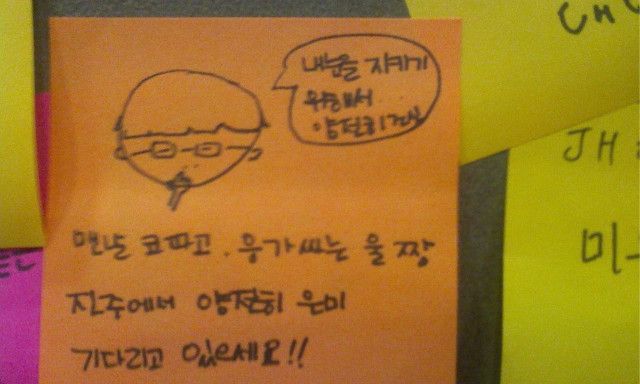 내님을 지키기
위해서
얌전히
맨날 코파고. 응가싸는 울 짱
진주에서 얌전히 은미
기다리고 있으세요!!
JH
미